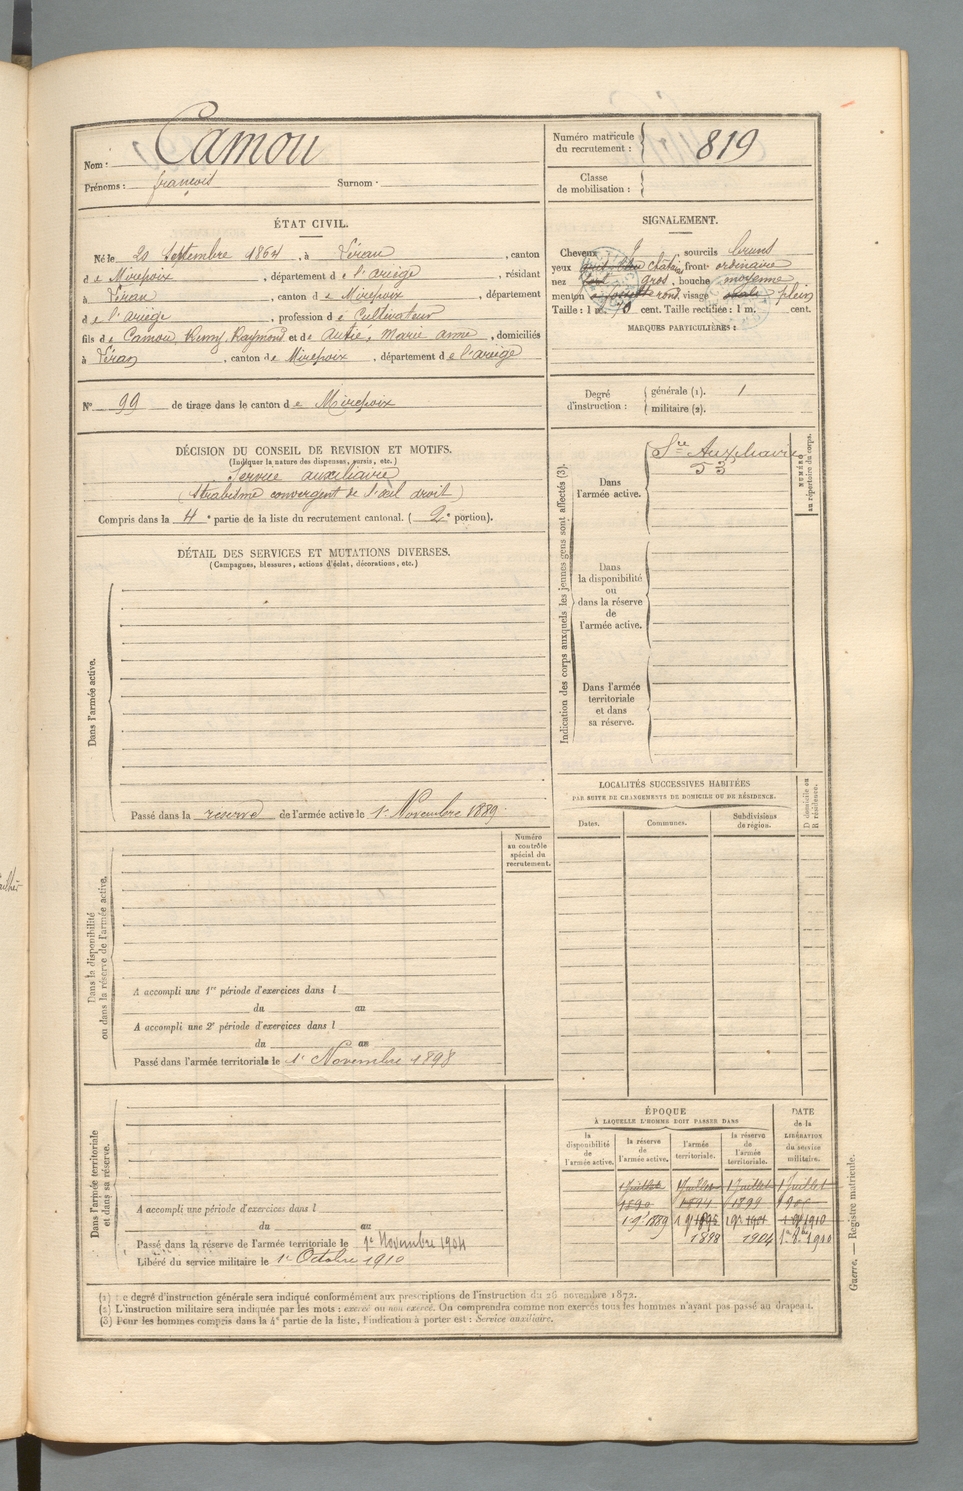 Nom : Camou
Prénoms : françois Surnom :
Numéro matricule du recrutement : 819
Classe de mobilisation :
ÉTAT CIVIL.
Né le 20 Septembre 1864, à Léran, canton
de Mirepoix, département de l'ariège, résidant
à Léran, canton de Mirepoix, département
de l'ariège, profession de Cultivateur
fils de Camou, Remy, Raymond et de Autié, Marie anne, domiciliés
à Léran, canton de Mirepoix, département de l'ariège
N° 99 de tirage dans le canton de Mirepoix
SIGNALEMENT.
Cheveux sourcils bruns
yeux châtains front ordinaire
nez gros, bouche moyenne
menton à fossette rond, visage ovale plein
Taille : 1 m. 70 cent. Taille rectifiée : 1 m. cent.
MARQUES PARTICULIÈRES :
Degré d'instruction : générale (1). 1
militaire (2).
DÉCISION DU CONSEIL DE REVISION ET MOTIFS.
(Indiquer la nature des dispenses, sursis, etc.)
Service auxiliaire
(Strabisme convergent de l'œil droit)
Compris dans la 4e partie de la liste du recrutement cantonal. (2e portion).
DÉTAIL DES SERVICES ET MUTATIONS DIVERSES.
(Campagnes, blessures, actions d'éclat, décorations, etc.)
Dans l'armée active.
Passé dans la reserve de l'armée active le 1er Novembre 1889.
Numéro au contrôle spécial du recrutement.
Dans la disponibilité ou dans la réserve de l'armée active.
A accompli une 1re période d'exercices dans l
du au
A accompli une 2e période d'exercices dans l
du au
Passé dans l'armée territoriale le 1er Novembre 1898
Dans l'armée territoriale et dans sa réserve.
A accompli une période d'exercices dans l
du au
Passé dans la réserve de l'armée territoriale le 1er Novembre 1904
Libéré du service militaire le 1er Octobre 1910
Indication des corps auxquels les jeunes gens sont affectés (3).
NUMÉRO au répertoire du corps.
Dans l'armée active.
Sre Auxiliaire
53
Dans la disponibilité ou dans la réserve de l'armée active.
Dans l'armée territoriale et dans sa réserve.
LOCALITÉS SUCCESSIVES HABITÉES
PAR SUITE DE CHANGEMENTS DE DOMICILE OU DE RÉSIDENCE.
D domicile ou R résidence.
Dates. Communes. Subdivisions de région.
ÉPOQUE
À LAQUELLE L'HOMME DOIT PASSER DANS
DATE de la LIBÉRATION du service militaire.
la disponibilité de l'armée active. la réserve de l'armée active. l'armée territoriale. la réserve de l'armée territoriale.
1 Juillet 1 Juillet 1 Juillet 1 Juillet
1890 1894 1899
1889 1910
1898 1904 1910
Guerre. — Registre matricule.
(1) Le degré d'instruction générale sera indiqué conformément aux prescriptions de l'instruction du 26 novembre 1872.
(2) L'instruction militaire sera indiquée par les mots : exercé ou non exercé. On comprendra comme non exercés tous les hommes n'ayant pas passé au drapeau.
(3) Pour les hommes compris dans la 4e partie de la liste, l'indication à porter est : Service auxiliaire.